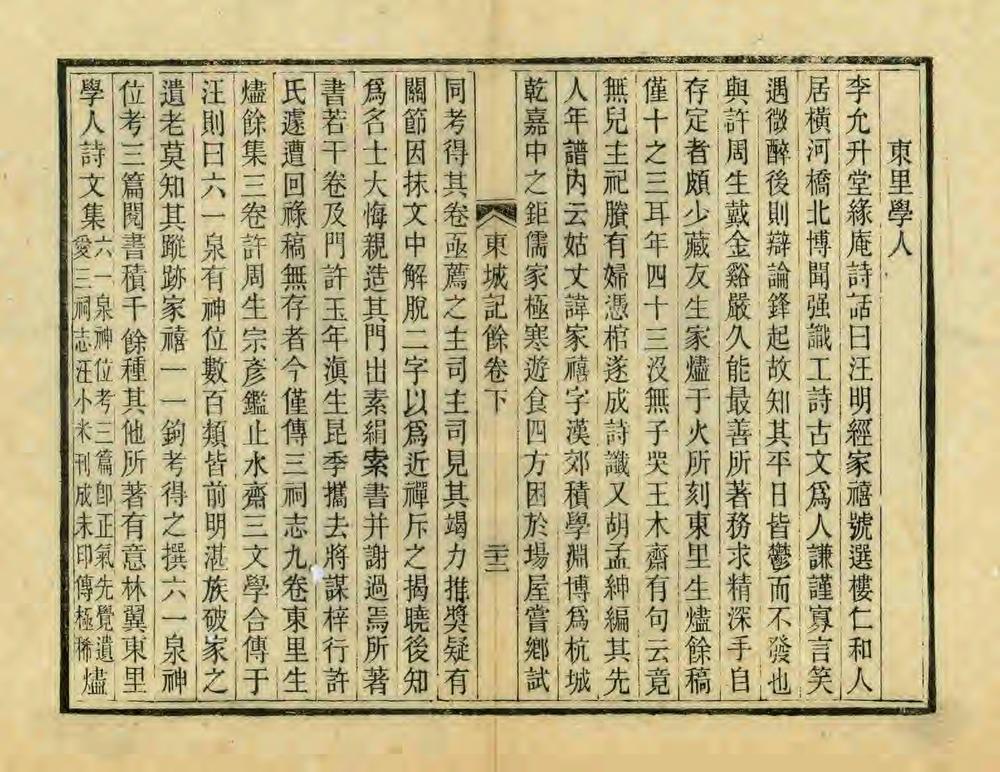 東里學人
李允升堂緣庵詩話曰汪明經家禧號選樓仁和人
居橫河橋北博聞强識工詩古文爲人謙謹寡言笑
遇微醉後則辯論鋒起故知其平日皆鬱而不發也
與許周生戴金谿嚴久能最善所著務求精深手自
存定者頗少藏友生家燼于火所刻東里生燼餘稿
僅十之三耳年四十三没無子哭王木齋有句云竟
無兒主祀賸有婦憑棺遂成詩讖又胡孟紳編其先
人年譜内云姑丈諱家禧字漢郊積學淵博爲杭城
乾嘉中之鉅儒家極寒遊食四方困於場屋嘗鄉試
東城記餘卷下
三十二
同考得其卷亟薦之主司主司見其竭力推獎疑有
關節因抹文中解脱二字以爲近禪斥之揭曉後知
爲名士大悔親造其門出素絹索書并謝過焉所著
書若干卷及門許玉年滇生昆季攜去將謀梓行許
氏遽遭回祿稿無存者今僅傳三祠志九卷東里生
燼餘集三卷許周生宗彥鑑止水齋三文學合傳于
汪則曰六一泉有神位數百類皆前明湛族破家之
遺老莫知其蹤跡家禧一一鉤考得之撰六一泉神
位考三篇閱書積千餘種其他所著有意林翼東里
學人詩文集六一泉神位考三篇卽正氣先覺遺
愛三祠志汪小米刊成未印傳極稀燼